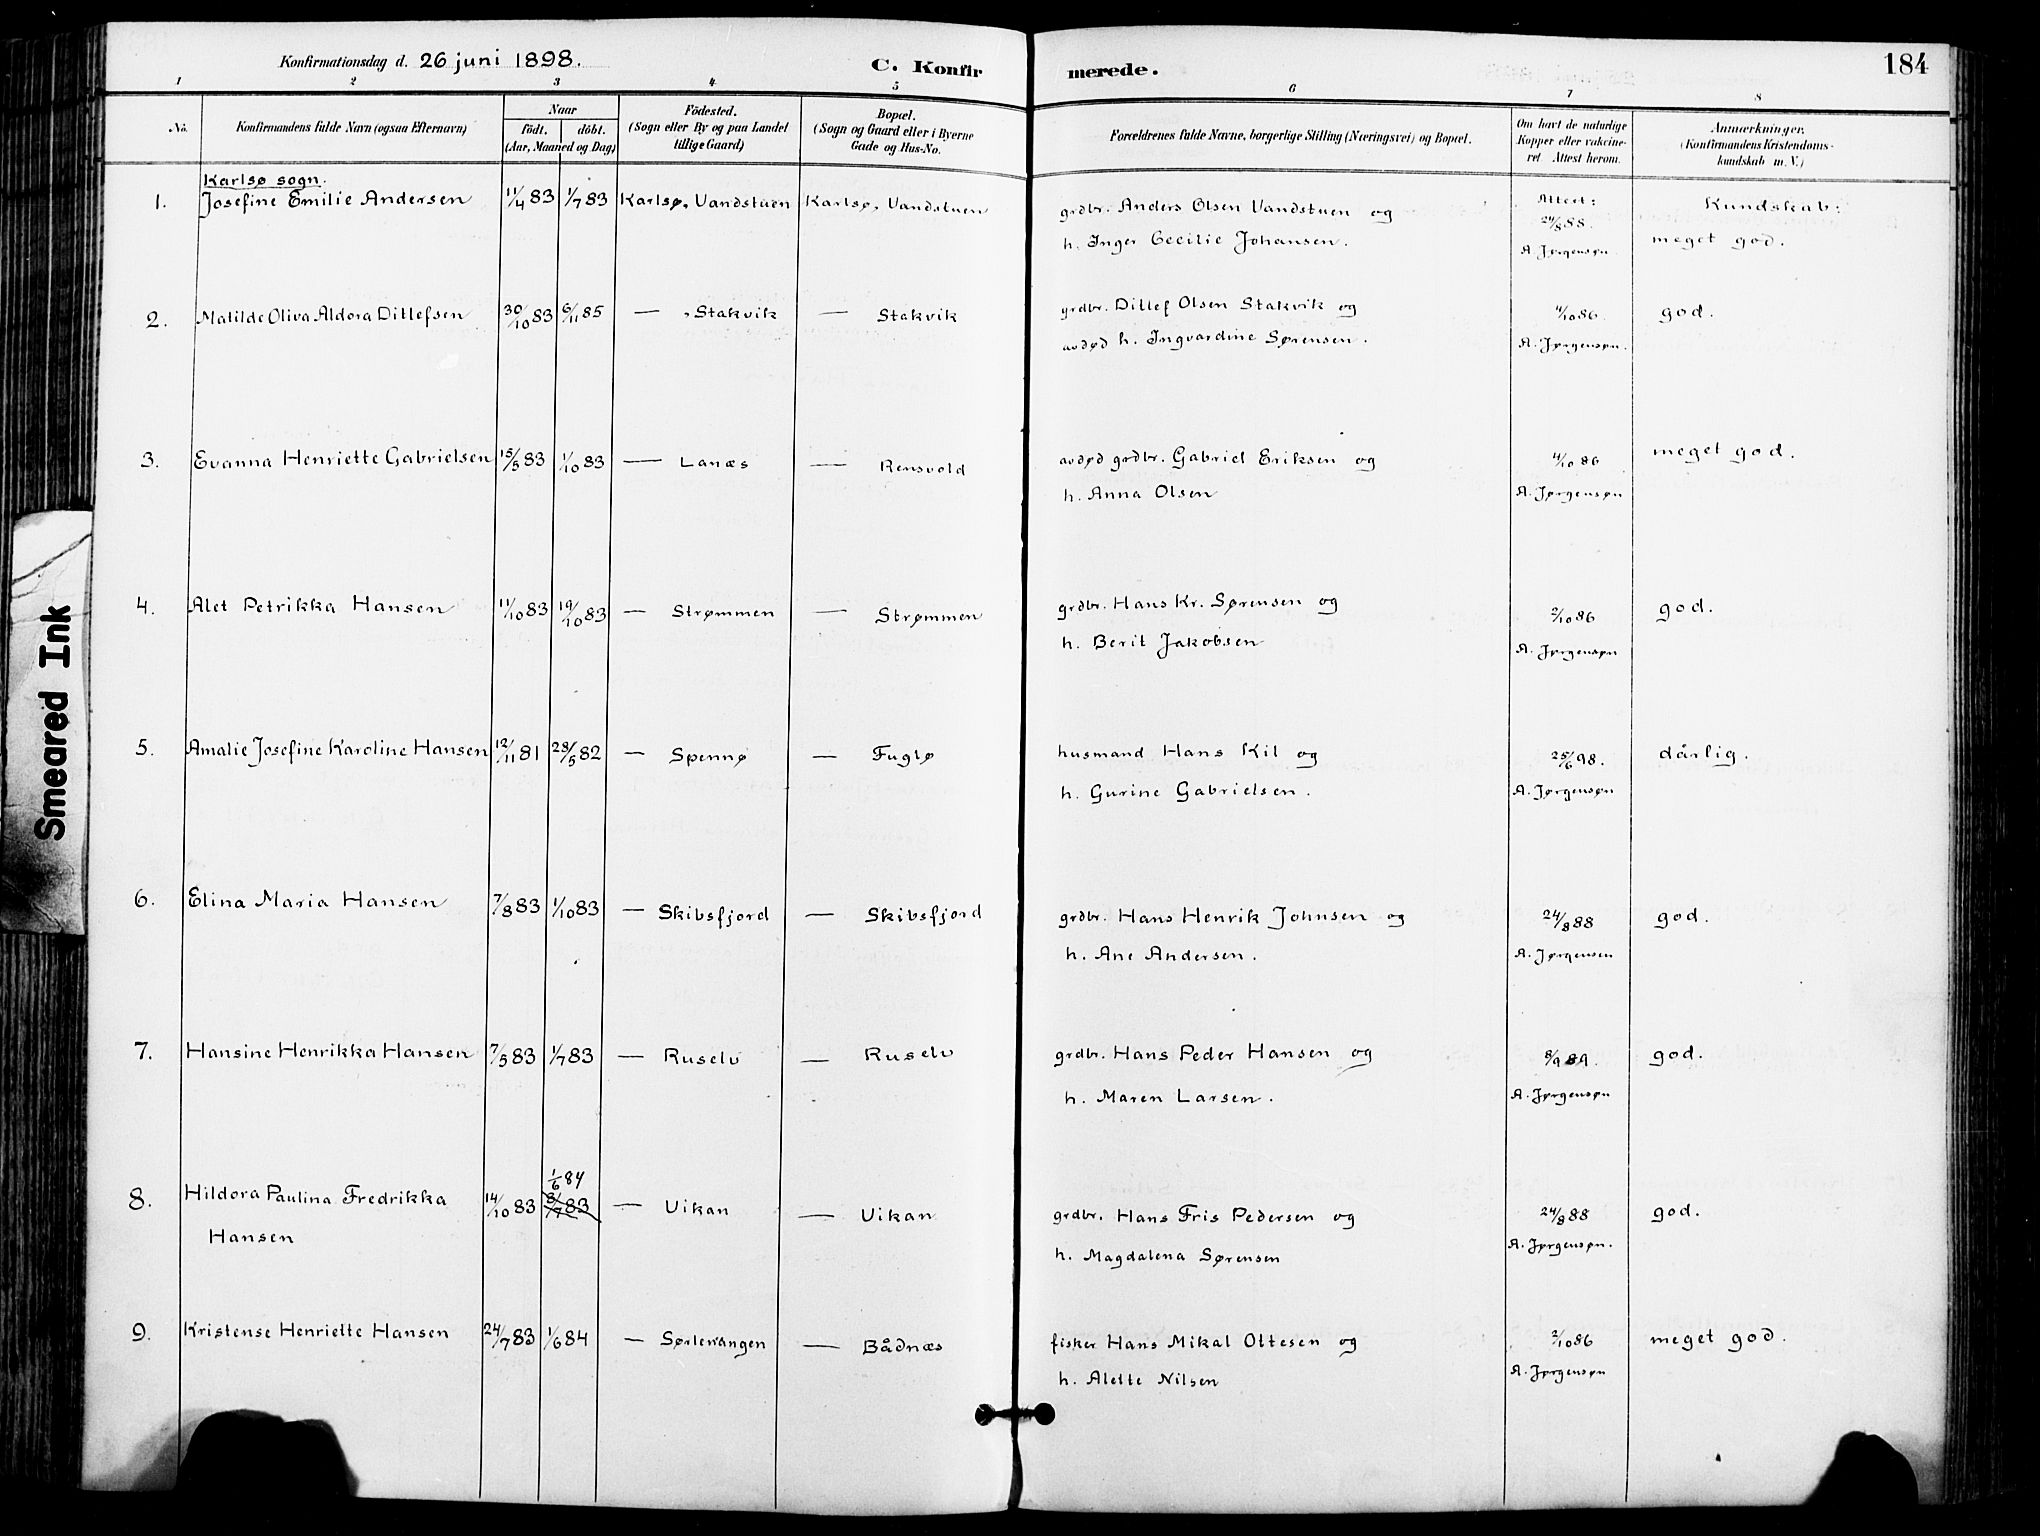 Konfirmationsdag d. 26 juni 1898.
C. Konfir
merede.
184
1 2 3 4 5 6 7 8
No.
Konfirmandens fulde Navn (ogsaa Efternavn)
Naar
födt. döbt.
(Aar, Maaned og Dag)
Födested.
(Sogn eller By og paa Landet
tillige Gaard)
Bopæl.
(Sogn og Gaard eller i Byerne
Gade og Hus-No.
Forældrenes fulde Navne, borgerlige Stilling (Næringsvei) og Bopæl.
Om havt de naturlige
Kopper eller vakcine-
ret. Attest herom.
Anmærkninger.
(Konfirmandens Kristendoms-
kundskab m. V.)
Karlsø sogn.
1. Josefine Emilie Andersen 11/4 83 1/7 83 Karlsø, Vandstuen Karlsø, Vandstuen
grdbr. Anders Olsen Vandstuen og
h. Inger Cecilie Johansen.
Attest:
24/8 88.
A. Jørgensøn
Kundskab:
meget god.
2. Matilde Oliva Aldora Ditlefsen 30/10 83 6/11 85 — , Stakvik — Stakvik
grdbr. Ditlef Olsen Stakvik og
avdød h. Ingvardine Sørensen.
4/10 86.
A. Jørgensøn.
god.
3. Evanna Henriette Gabrielsen 15/5 83 1/10 83 — Lanæs — Rensvold
avdød grdbr. Gabriel Eriksen og
h. Anna Olsen
4/10 86
A. Jørgensøn
meget god.
4. Alet Petrikka Hansen 11/10 83 19/10 83 — Strømmen — Strømmen
grdbr. Hans Kr. Sørensen og
h. Berit Jakobsen
2/10 86
A. Jørgensøn
god.
5. Amalie Josefine Karoline Hansen 12/11 81 28/5 82 — Spennø — Fuglø
husmand Hans Kil og
h. Gurine Gabrielsen.
25/6 98.
A. Jørgensøn
dårlig.
6. Elina Maria Hansen 7/8 83 1/10 83 — Skibsfjord — Skibsfjord
grdbr. Hans Henrik Johnsen og
h. Ane Andersen.
24/8 88
A. Jørgensen
god.
7. Hansine Henrikka Hansen 7/5 83 1/7 83 — Ruselv — Ruselv
grdbr. Hans Peder Hansen og
h. Maren Larsen.
8/9 89.
A. Jørgensøn
god.
1/6 84
8. Hildora Paulina Fredrikka 14/10 83 3/7 83 — Vikan — Vikan
Hansen
grdbr. Hans Fris Pedersen og
h. Magdalena Sørensen
24/8 88
A. Jørgensøn.
god.
9. Kristense Henriette Hansen 24/7 83 1/6 84 — Sørlenangen — Bådnæs
fisker Hans Mikal Ottesen og
h. Alette Nilsen
2/10 86
A. Jørgensøn
meget god.
Smeared Ink